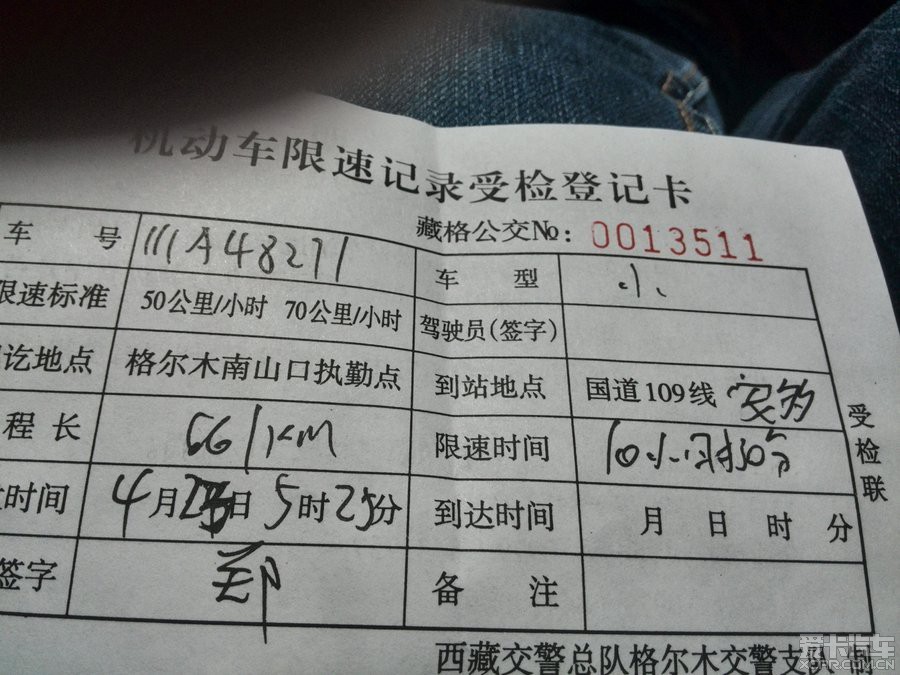 机动车限速记录受检登记卡
藏格公交№: 0013511
车 号 A48271 车 型 小
限速标准 50公里/小时 70公里/小时 驾驶员(签字)
讫地点 格尔木南山口执勤点 到站地点 国道109线 安多
程 长 661KM 限速时间 10小时50分
时间 4月 日 5时25分 到达时间 月 日 时 分
签字 郑 备 注
受检联
西藏交警总队格尔木交警支队制
爱卡汽车
XCAR.COM.CN